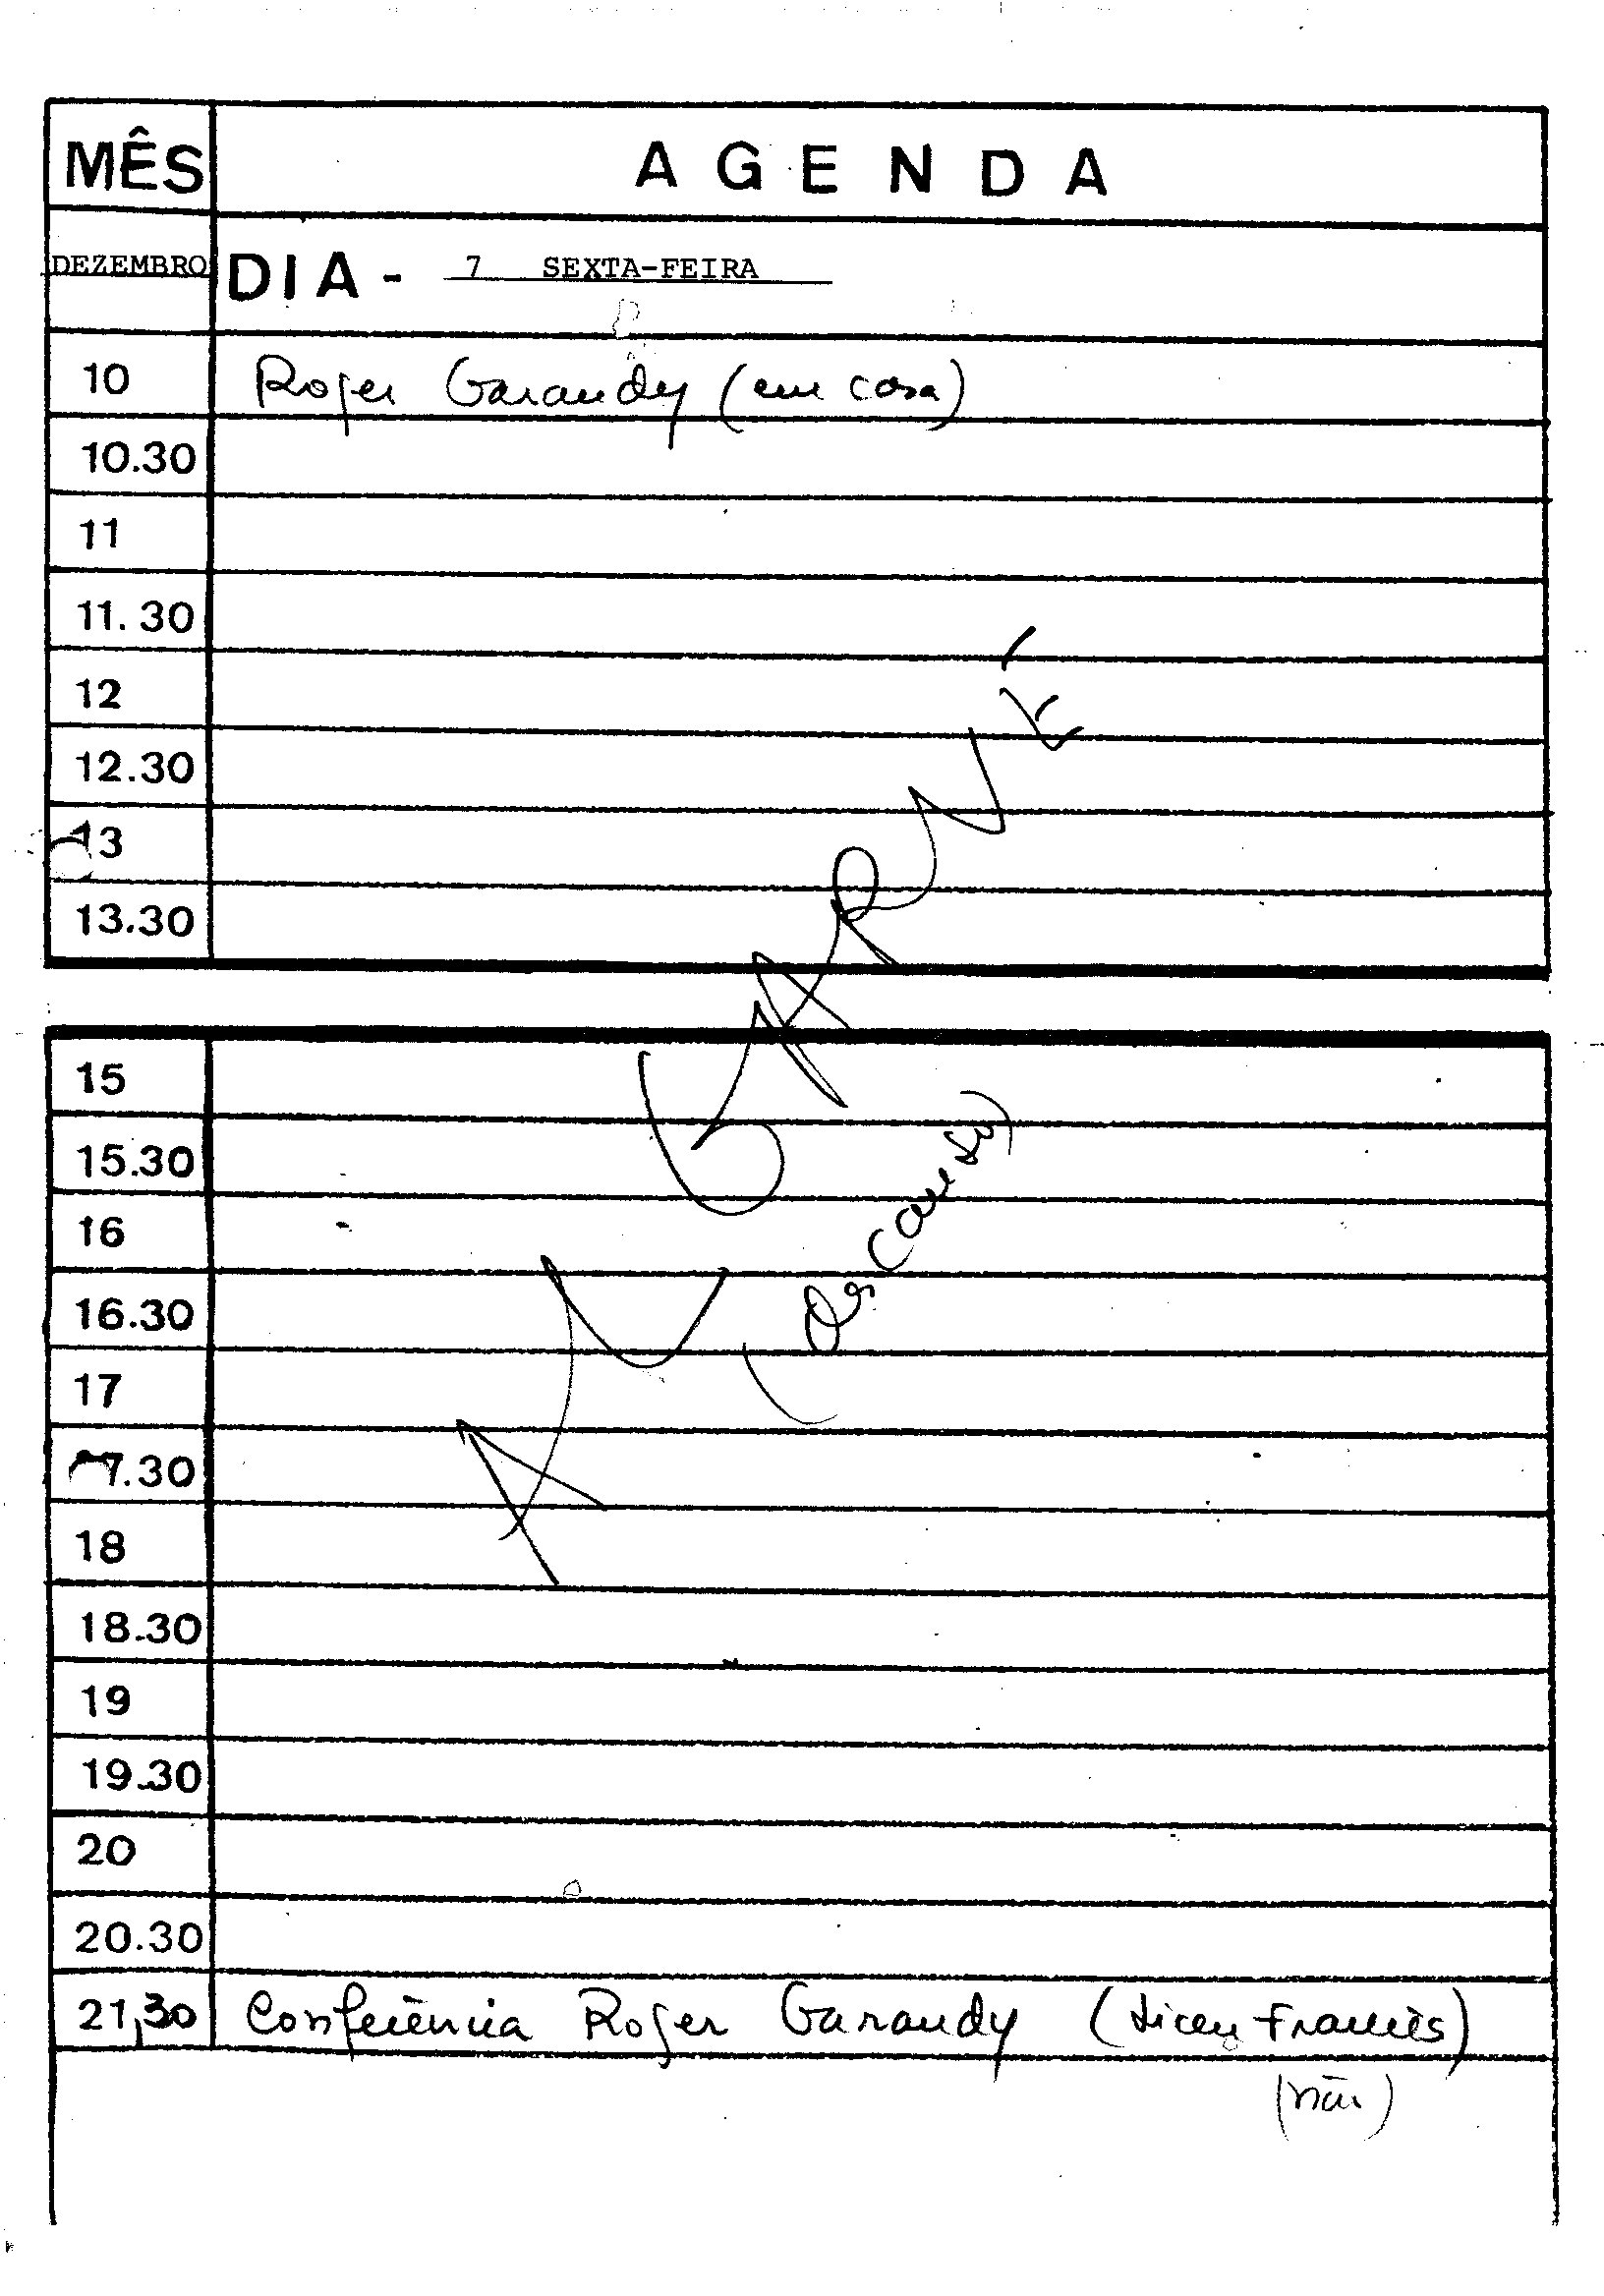 MÊS AGENDA
DEZEMBRO DIA - 7 SEXTA-FEIRA
10 Roger Garaudy (em casa)
10.30
11
11.30
12
12.30
13
13.30
ALGARVE
(Descanso)
15
15.30
16
16.30
17
17.30
18
18.30
19
19.30
20
20.30
21,30 Conferência Roger Garaudy (Liceu Francês)
(não)